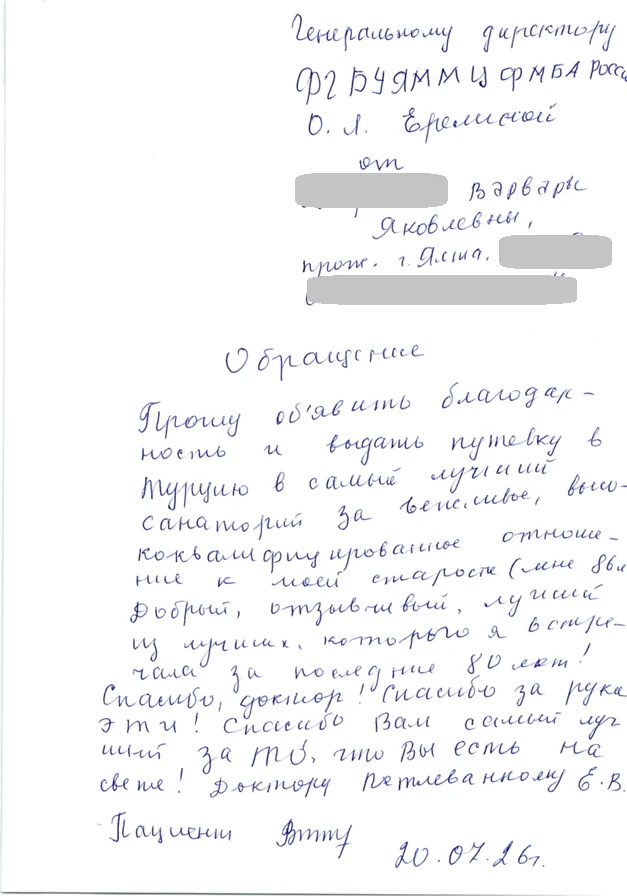 Генеральному директору
ФГБУЯММЦ ФМБА России
О. Л. Ерелинской
от
Варвары
Яковлевны,
прож. г. Ялта,
Обращение
Прошу об'явить благодар-
ность и выдать путевку в
Турцию в самый лучший
санаторий за вежливое, высо-
коквалифицированное отноше-
ние к моей старости (мне 86л
Добрый, отзывчивый, лучший
из лучших, которого я встре-
чала за последние 80 лет!
Спасибо, доктор! Спасибо за рука
эти! Спасибо Вам самый луч
ший за то, что Вы есть на
свете! Доктору Петлеванному Е.В.
Пациент
20.07.26г.